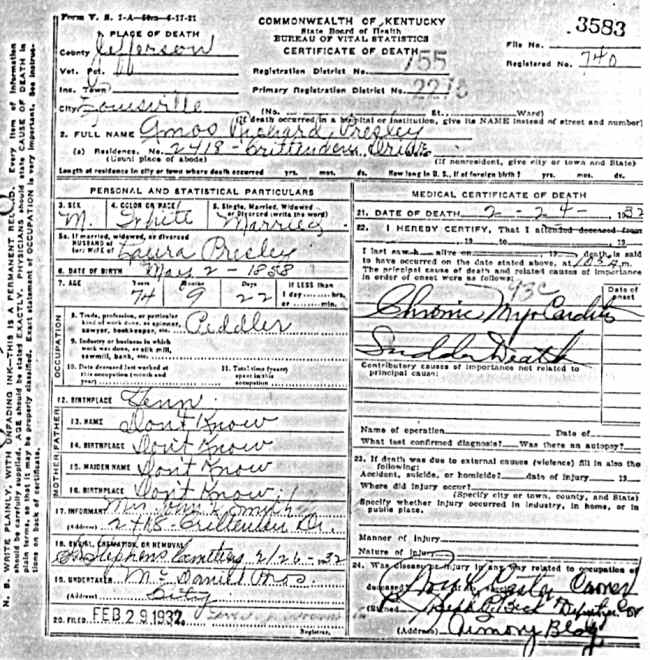 Form V. S. 1-A
COMMONWEALTH OF KENTUCKY
State Board of Health
BUREAU OF VITAL STATISTICS
CERTIFICATE OF DEATH
3583
File No.
Registered No. 740
1. PLACE OF DEATH
County Jefferson
Vot. Pct.
Inc. Town
City Louisville
Registration District No. 755
Primary Registration District No. 2275
(No. St., Ward)
(If death occurred in a hospital or institution, give its NAME instead of street and number)
2. FULL NAME Amos Richard Presley
(a) Residence. No. 2418 - Crittenden Drive
(Usual place of abode)
(If nonresident, give city or town and State)
Length of residence in city or town where death occurred yrs. mos. ds. How long in U. S., if of foreign birth? yrs. mos. ds.
PERSONAL AND STATISTICAL PARTICULARS
3. SEX
M.
4. COLOR OR RACE
White
5. Single, Married, Widowed or Divorced (write the word)
Married
5a. If married, widowed, or divorced
HUSBAND of
(or) WIFE of Laura Presley
6. DATE OF BIRTH May 2 - 1858
7. AGE Years Months Days If LESS than
74 9 22 1 day hrs.
or min.
OCCUPATION
8. Trade, profession, or particular kind of work done, as spinner, sawyer, bookkeeper, etc. Peddler
9. Industry or business in which work was done, as silk mill, sawmill, bank, etc.
10. Date deceased last worked at this occupation (month and year)
11. Total time (years) spent in this occupation
12. BIRTHPLACE Tenn
FATHER
13. NAME Don't Know
14. BIRTHPLACE Don't Know
MOTHER
15. MAIDEN NAME Don't Know
16. BIRTHPLACE Don't Know
17. INFORMANT Mrs
(Address) 2418 - Crittenden Dr.
18. BURIAL, CREMATION, OR REMOVAL
St Stephens Cemetery 2/26 - 32
19. UNDERTAKER McDaniel Bros.
(Address) City
20. FILED FEB 29 1932
Registrar.
MEDICAL CERTIFICATE OF DEATH
21. DATE OF DEATH 2 - 24 - 1932
22. I HEREBY CERTIFY, That I attended deceased from
, 19 to , 19
I last saw h alive on , 19 , death is said
to have occurred on the date stated above, at m.
The principal cause of death and related causes of importance
in order of onset were as follows:
Date of onset
Chronic Myocarditis
Sudden Death
Contributory causes of importance not related to
principal cause:
Name of operation Date of
What test confirmed diagnosis? Was there an autopsy?
23. If death was due to external causes (violence) fill in also the
following:
Accident, suicide, or homicide? date of injury 19
Where did injury occur?
(Specify city or town, county, and State)
Specify whether injury occurred in industry, in home, or in
public place.
Manner of injury
Nature of injury
24. Was disease or injury in any way related to occupation of
deceased? Coroner
(Signed)
(Address) Armory Bldg.
N. B. WRITE PLAINLY, WITH UNFADING INK—THIS IS A PERMANENT RECORD. Every item of information
should be carefully supplied. AGE should be stated EXACTLY. PHYSICIANS should state CAUSE OF DEATH in
plain terms, so that it may be properly classified. Exact statement of OCCUPATION is very important. See instruc-
tions on back of certificate.